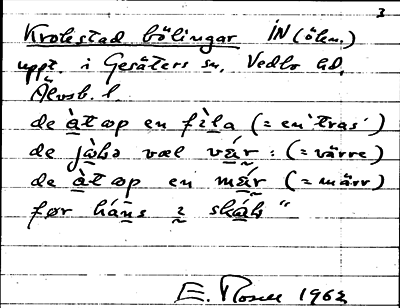 3
Krokstad bölingar IN (ökn.)
uppt. i Gesäters sn. Vedbo hd.
Älvsb. l.
de àt op en fìla (= en 'tras')
de jàbə væl vár : (= värre)
de àt op en mær (= märr)
før háns skáb"
E. Rosell 1962